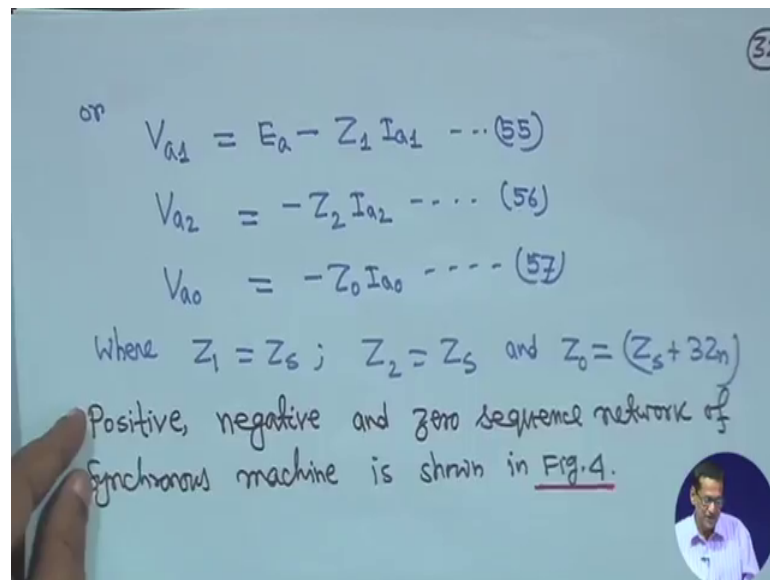 32
or
V_{a1} = E_a - Z_1 I_{a1} --- (55)
V_{a2} = -Z_2 I_{a2} ---- (56)
V_{a0} = -Z_0 I_{a0} ---- (57)
Where Z_1 = Z_s ; Z_2 = Z_s and Z_0 = (Z_s + 3Z_n)
Positive, negative and zero sequence network of
Synchronous machine is shown in Fig.4.